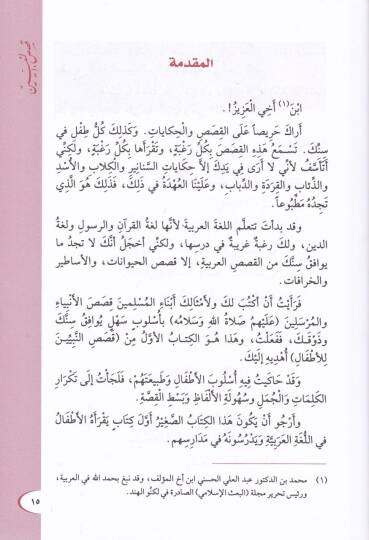 قصص النبيين
المقدمة
ابْنَ(١) أَخِي الْعَزِيزُ! .
أَرَاكَ حَرِيصاً عَلَى القِصَصِ والْحِكاياتِ. وَكَذلِكَ كُلُّ طِفْلٍ في
سِنِّكَ. تَسْمَعُ هَذِهِ القِصَصَ بِكلِّ رَغْبَةٍ، وتَقْرَأُها بِكُلِّ رَغْبَةٍ، ولَكِنِّي
أَتَأَسَّفُ لأنِّي لا أرَى فِي يَدِكَ إلاَّ حِكاياتِ السَّنانِيرِ والْكِلابِ والأُسْدِ
والذِّئابِ والقِرَدَةِ والدِّبابِ، وعَلَيْنَا العُهْدَةُ في ذَلِكَ، فَذَلِكَ هُوَ الَّذِي
تَجِدُهُ مَطْبُوعاً.
وقد بدأتَ تتعلَّم اللغةَ العربيةَ لأنَّها لغةُ القرآنِ والرسولِ ولغةُ
الدين، ولكَ رغبةٌ غريبةٌ في درسِها، ولكنِّي أخجَلُ أنَّكَ لا تجدُ ما
يوافقُ سِنَّكَ من القصصِ العربيةِ، إلا قصصَ الحيوانات، والأساطير
والخرافات.
فَرَأَيْتُ أَنْ أكْتُبَ لَكَ ولأمْثالِكَ أَبْنَاءِ المُسْلِمينَ قِصَصَ الأنْبِياءِ
والمُرْسَلينَ (عَلَيْهِمْ صَلاةُ اللهِ وَسَلامُه) بأُسْلوبٍ سَهْلٍ يُوَافِقُ سِنَّكَ
وذَوْقَكَ، فَفَعَلْتُ، وهَذا هُوَ الكِتابُ الأوَّلُ مِنْ (قَصَصِ النَّبِيِّينَ
لِلأطْفَالِ) أُهْدِيهِ إلَيْكَ.
وَقَدْ حَاكَيْتُ فِيهِ أُسْلُوبَ الأَطْفَالِ وَطَبِيعَتَهُمْ، فَلَجَأْتُ إلَى تَكْرَارِ
الكَلِمَاتِ والْجُمَلِ وسُهُولَةِ الأَلْفَاظِ وَبَسْطِ القِصَّةِ.
وأَرْجُو أَنْ يَكُونَ هَذا الكِتَابُ الصَّغِيْرُ أَوَّلَ كِتَابٍ يَقْرَأُهُ الأَطْفَالُ
في اللُّغَةِ العَرَبِيَّةِ وَيَدْرُسُونَهُ في مَدَارِسِهم.
(١) محمد بن الدكتور عبد العلي الحسني ابن أخ المؤلف، وقد نبغ بحمد الله في العربية،
ورئيس تحرير مجلة (البعث الإسلامي) الصادرة في لكنؤ الهند.
١٥